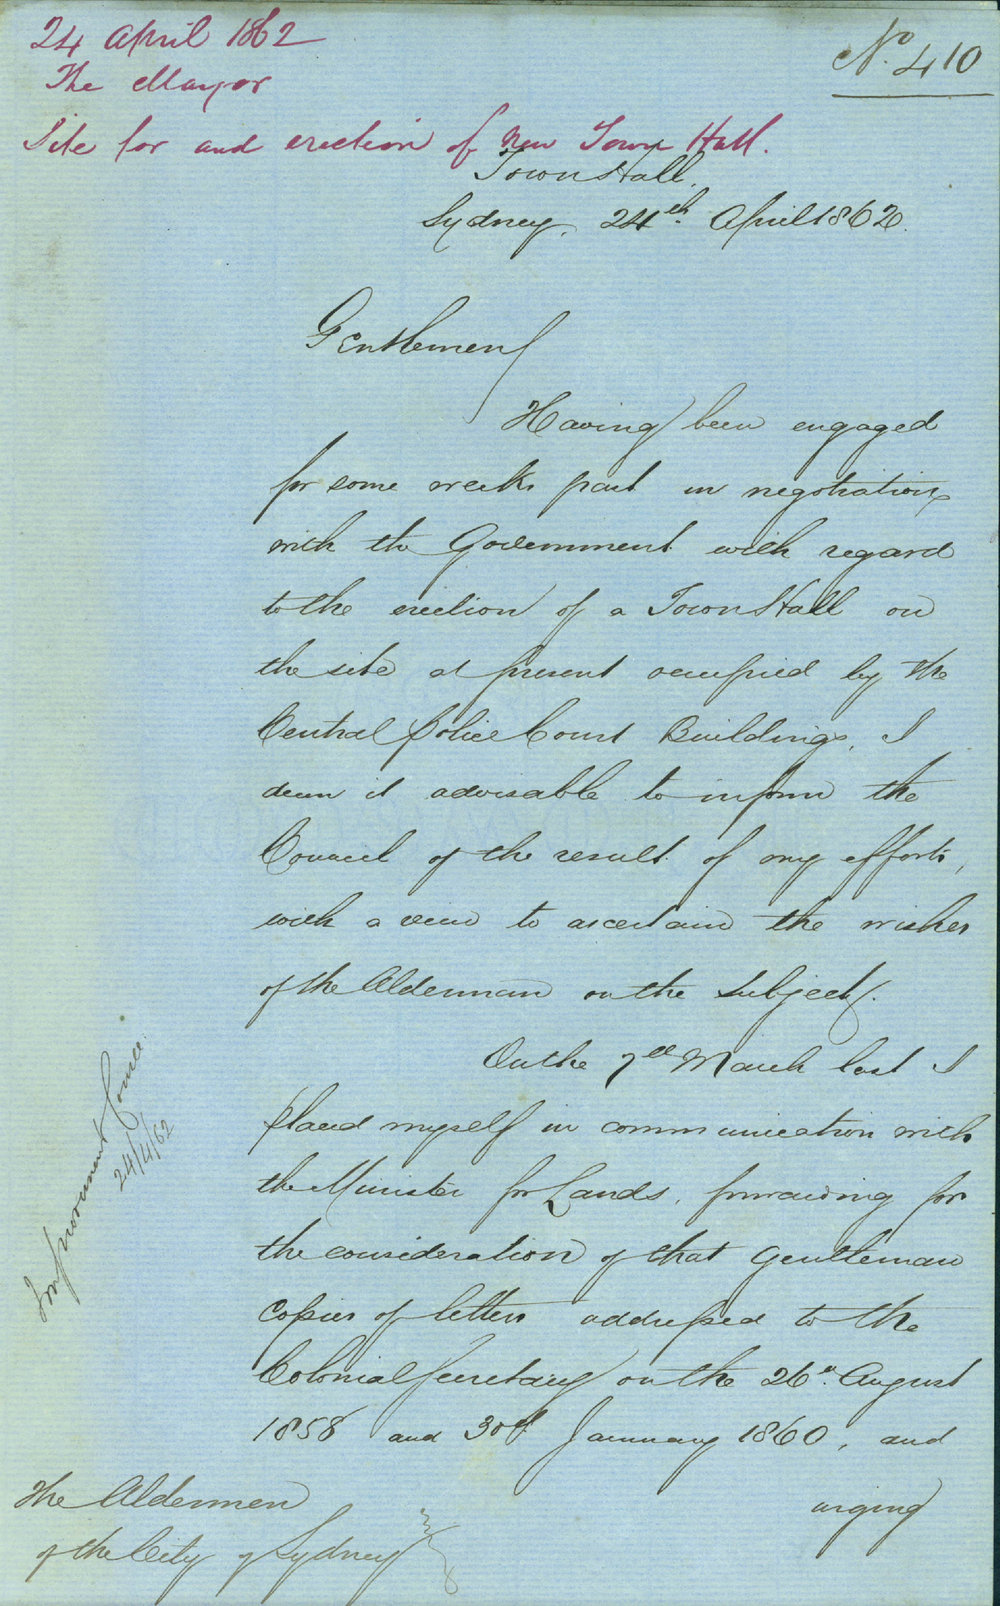 24 April 1862
The Mayor
Site for and erection of New Town Hall.
No. 410
Town Hall,
Sydney, 24th April 1862.
Gentlemen
Having been engaged
for some weeks past in negotiations
with the Government with regard
to the erection of a Town Hall on
the site at present occupied by the
Central Police Court Buildings, I
deem it advisable to inform the
Council of the result of my efforts,
with a view to ascertain the wishes
of the Alderman on the subject.
On the 7th March last I
placed myself in communication with
the Minister for Lands, forwarding for
the consideration of that Gentleman
copies of letters addressed to the
Colonial Secretary on the 26th August
1858 and 30th January 1860, and
urging
The Aldermen
of the City of Sydney
Improvement Comee.
24/4/62